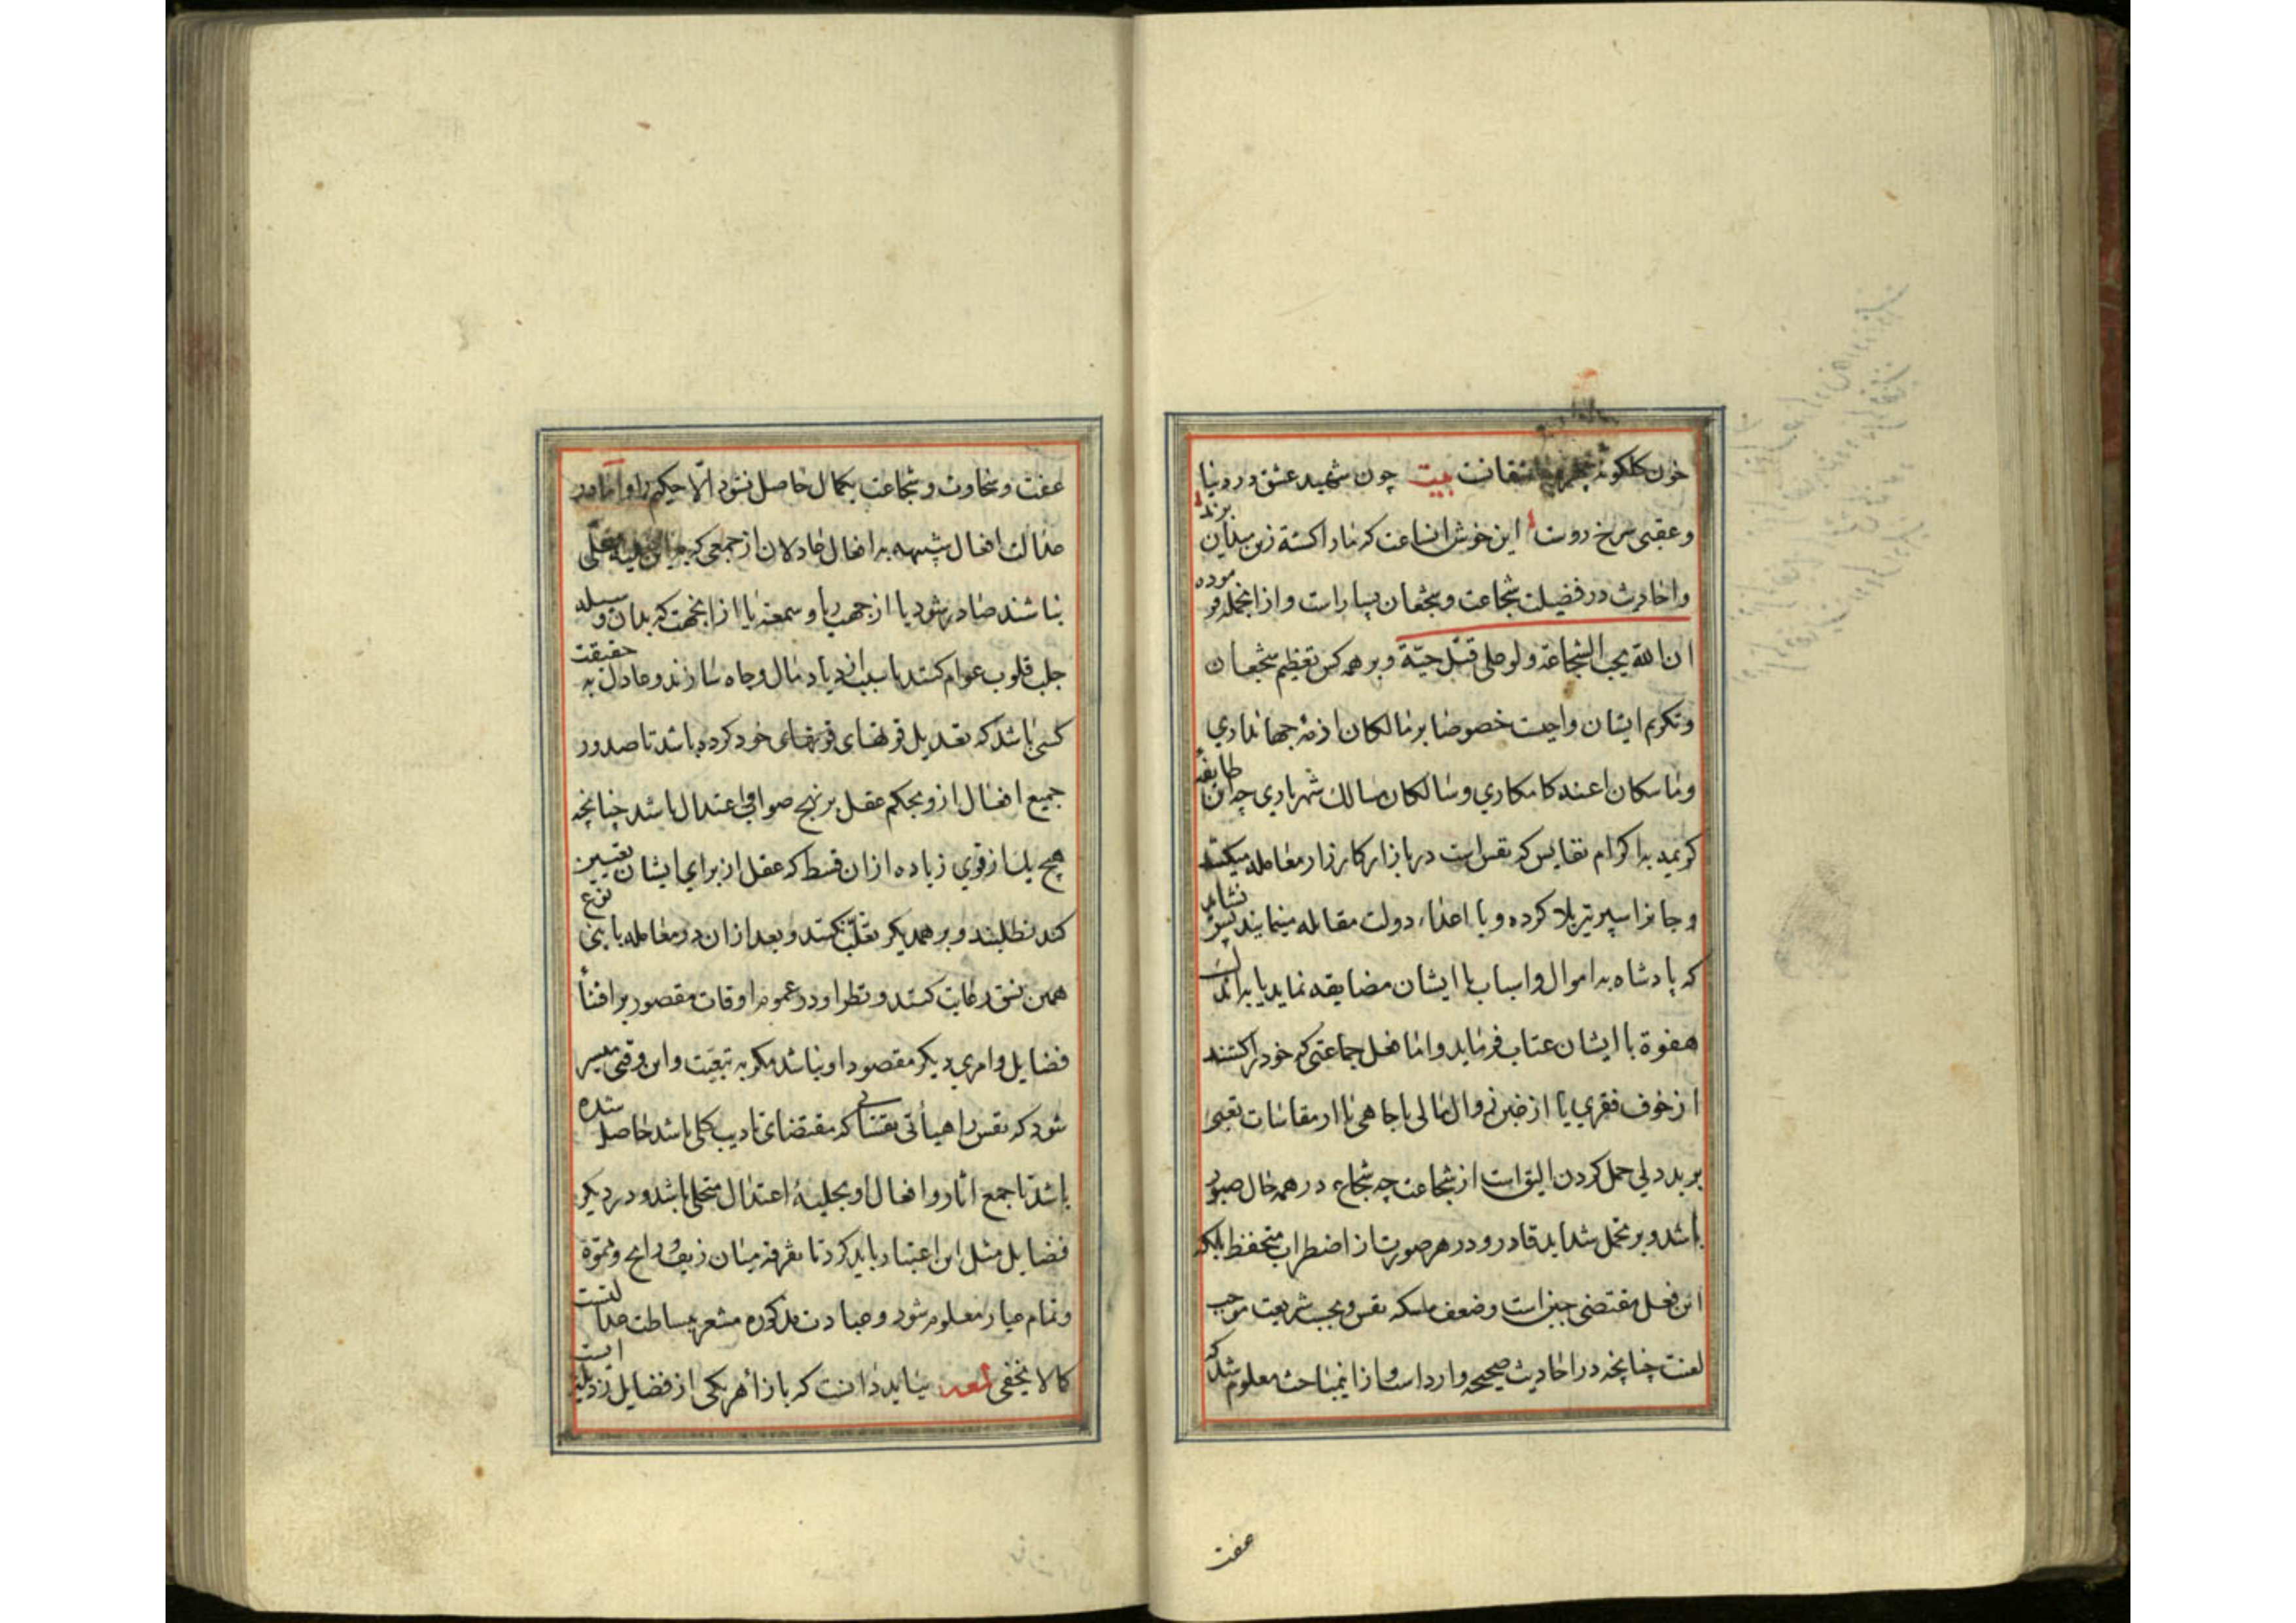 خون كلكونه چهره عاشقانست بيت چون شهيد عشق در دنيا
و عقبى سرخ روست اين خوش انساعت كه ما را كشته زين ميدان برند
واحاديث در فضيلت شجاعت و شجعان بسيارست وازانجمله فرموده
ان الله يحب الشجاعة ولو على قتل حية و بر همه كس تعظيم شجعان
وتكريم ايشان واجبست خصوصا بر مالكان ازمه جهاندارى
و ماسكان اعنه كامكاري وسالكان مسالك شهرياري چه اين طايفه
كريمه به اكرام نفايس كه نفس است در بازار كارزار معامله ميكنند
و جانرا سپر تير بلا كرده و با اعداء دولت مقابله مينمايند پس نشايد
كه پادشاه به اموال واسباب با ايشان مضايقه نمايد يا به اندك
هفوة با ايشان عتاب فرمايد و اما فعل جماعتى كه خود را كشند
از خوف فقري يا از خبر زوال مالى يا جاهى يا از مقاسات تعبى
بر بددلي حمل كردن اليق است از شجاعت چه شجاع در همه حال صبور
باشد و بر تحمل شدايد قادر و در هر صورت از اضطراب متحفظ بلكه
اين فعل مقتضى جبن است وضعف مسكه نفس و بحسب شريعت موجب
لعنت چنانچه در احاديث صحيحه وارد است و از اين مباحث معلوم شد كه
عفت
عفت و سخاوت و شجاعت بكمال حاصل نشود الا حكيم را و اما در
عدالت افعال شبيهه به افعال عادلان از جمعى كه باين حليه متحلى
نباشند صادر شود يا از جهت ريا و سمعه يا از انجهت كه بدان وسيله
جلب قلوب عوام كنند يا سبب ازدياد مال و جاه سازند و عادل به حقيقت
كسى باشد كه تعديل قوتهاى خود كرده باشد تا صدور
جميع افعال ازو بحكم عقل بر نهج صواب و اعتدال باشد چنانچه
هيچ يك از قوي زياده ازان قسط كه عقل از براي ايشان تعيين
كند نطلبند و بر همديكر تغلب نكنند و بعد ازان در معامله با بنى نوع
همين نسق رعايت كنند و نظر او در عموم اوقات مقصور بر اقتناء
فضايل و امري ديكر مقصود او نباشد مكر به تبعيت و اين وقتى ميسر
شود كه نفس را هيأتى نفسانى كه مقتضاى تاديب كلى باشد حاصل شده
باشد تا جميع اثار و افعال او بحليهٔ اعتدال متحلى باشد و در ديكر
فضايل مثل اين اعتبار بايد كرد تا تفرقه ميان زيف و رايج و مموه
و تمام عيار معلوم شود و عبارت مذكوره مشعر ببساطت عدالتست
كما لا يخفى لمعه ببايد دانست كه بازاء هر يكى از فضايل رذيلتيست